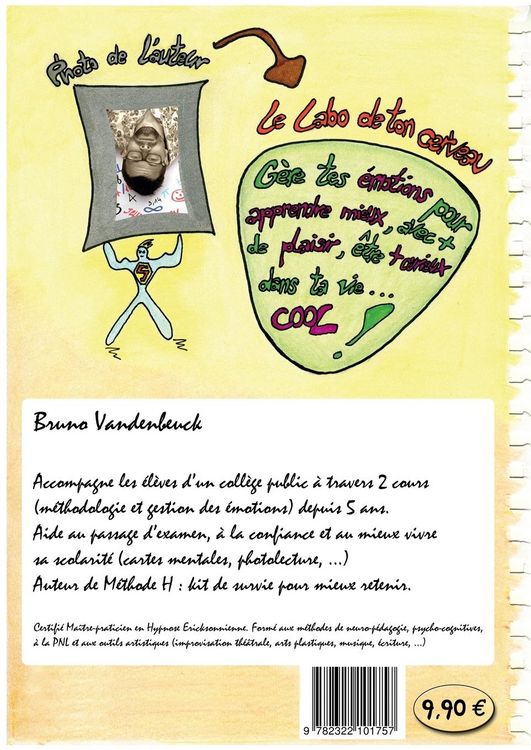 Photo de l'auteur
Le Labo de ton cerveau
Gère tes émotions pour
apprendre mieux, avec +
de plaisir, Être + curieux
dans ta vie...
COOL !
Bruno Vandenbeuck
Accompagne les élèves d'un collège public à travers 2 cours
(méthodologie et gestion des émotions) depuis 5 ans.
Aide au passage d'examen, à la confiance et au mieux vivre
sa scolarité (cartes mentales, photolecture, ...)
Auteur de Méthode H : kit de survie pour mieux retenir.
Certifié Maître-praticien en Hypnose Ericksonnienne. Formé aux méthodes de neuro-pédagogie, psycho-cognitives,
à la PNL et aux outils artistiques (improvisation théâtrale, arts plastiques, musique, écriture, ...)
9 782322 101757
9,90 €